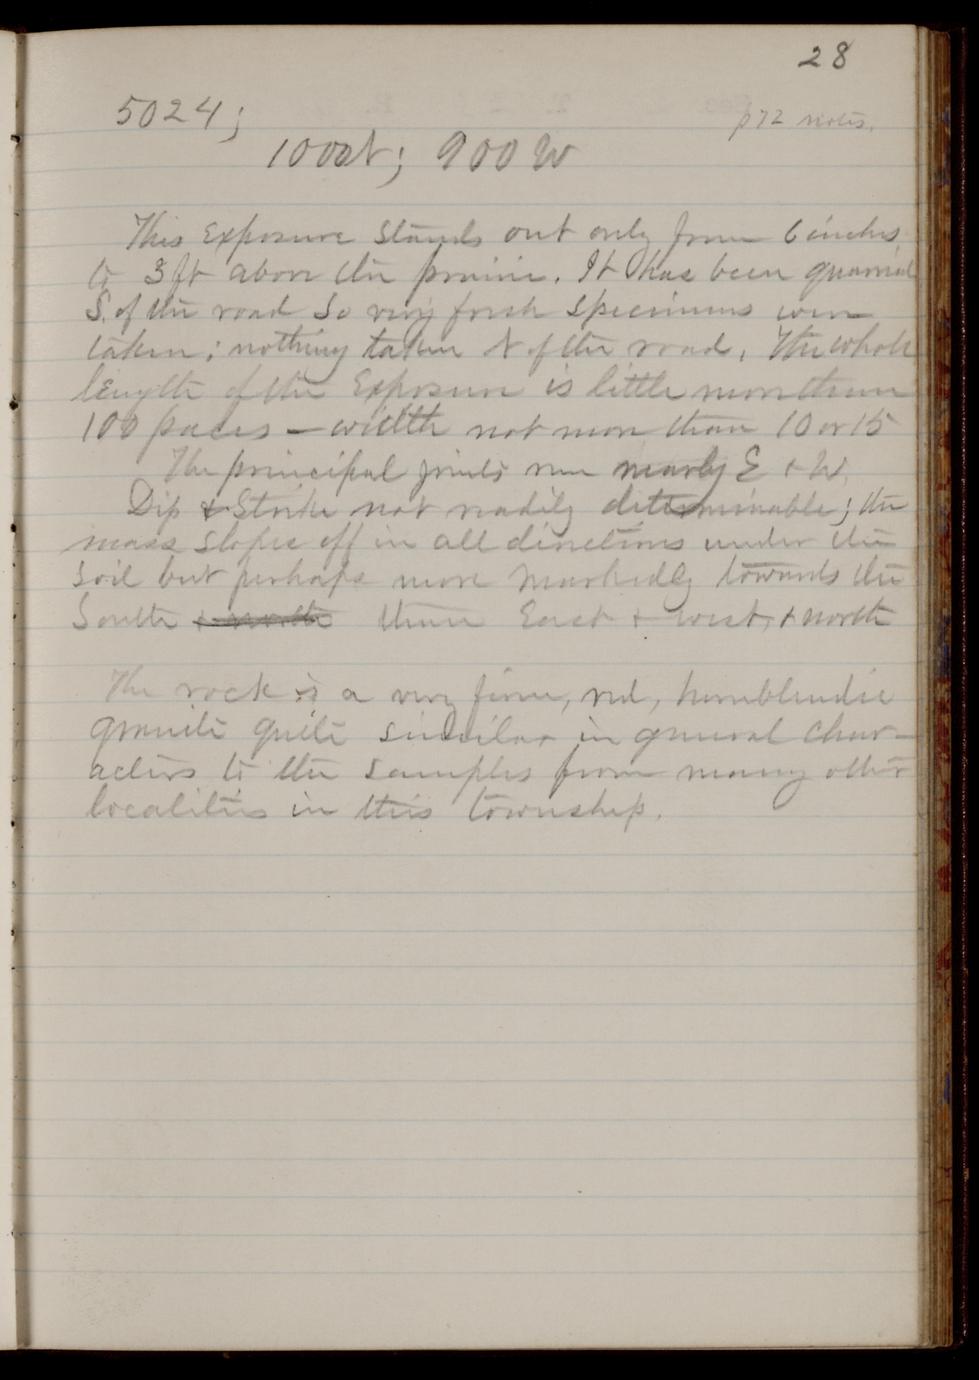 28
5024;
p72 notes.
1000N; 900W
This Exposure Stands out only from 6 inches
to 3 ft above the prairie. It has been quarried
S. of the road So very fresh Specimens were
taken; nothing taken N of the road. The whole
length of the Exposure is little more than
100 paces — width not more than 10 or 15
The principal joints run nearly E + W.
Dip & Strike not readily determinable; the
mass slopes off in all directions under the
Soil but perhaps more markedly towards the
South + north than East + west, + north
The rock is a very firm, red, hornblendic
granite quite similar in general char-
acters to the samples from many other
localities in this township.